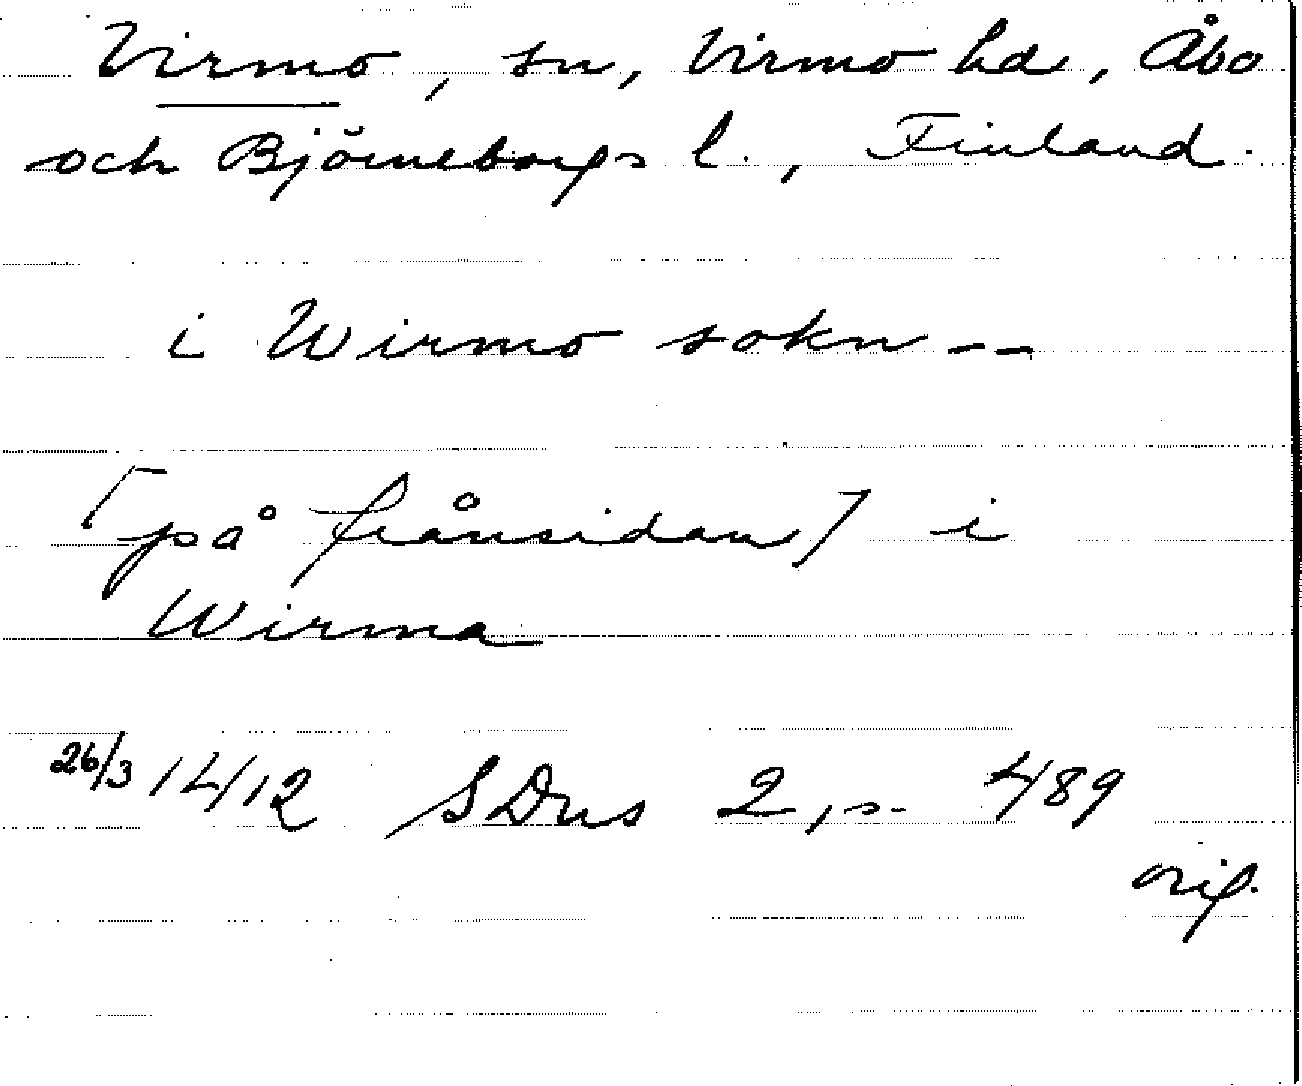 Virmo, sn, Virmo hd, Åbo
och Björneborgs l., Finland.
i Wirmo sokn --
[på frånsidan] i
Wirma
26/3 1412 SDns 2, s. 489
orig.